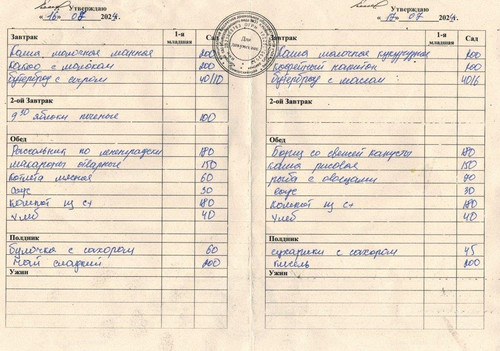 Утверждаю
« 16 » 07 2024г.
Завтрак 1-я младшая Сад
Каша молочная манная 200
Какао с молоком 200
бутерброд с сыром 40/10
2-ой Завтрак
9 30 яблоки печеные 100
Обед
Рассольник по ленинградски 180
макароны отварные 150
котлета мясная 60
соус 30
Компот из с+ 180
хлеб 40
Полдник
булочка с сахаром 60
Чай сладкий 200
Ужин
Утверждаю
« 17 » 07 2024г.
Завтрак 1-я младшая Сад
Каша молочная кукурузная 200
Кофейный напиток 200
бутерброд с маслом 40/6
2-ой Завтрак
Обед
Борщ со свежей капусты 180
каша рисовая 150
рыба с овощами 90
соус 30
Компот из с+ 180
хлеб 40
Полдник
сухарики с сахаром 45
кисель 200
Ужин
Для документов